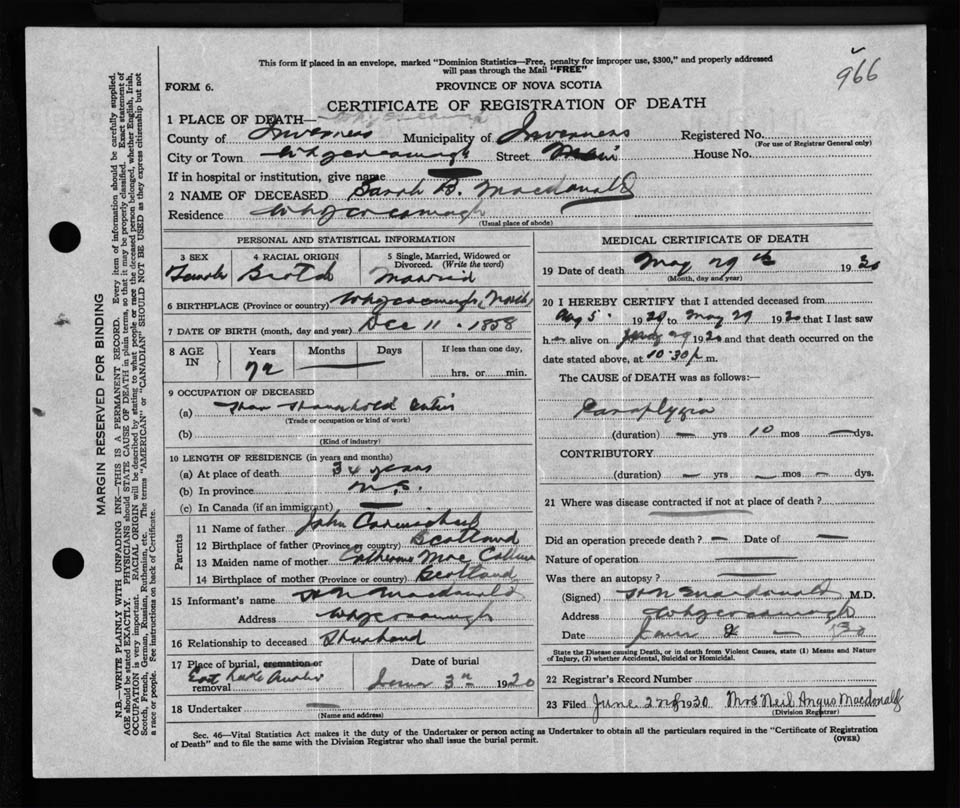 966
This form if placed in an envelope, marked "Dominion Statistics—Free, penalty for improper use, $300," and properly addressed
will pass through the Mail "FREE"
FORM 6.
PROVINCE OF NOVA SCOTIA
CERTIFICATE OF REGISTRATION OF DEATH
1 PLACE OF DEATH— Whycocomagh
County of Inverness Municipality of Inverness Registered No.
(For use of Registrar General only)
City or Town Whycocomagh Street Main House No.
If in hospital or institution, give name
2 NAME OF DECEASED Sarah B. Macdonald
Residence Whycocomagh
(Usual place of abode)
PERSONAL AND STATISTICAL INFORMATION
3 SEX 4 RACIAL ORIGIN 5 Single, Married, Widowed or Divorced. (Write the word)
Female Scotch Married
6 BIRTHPLACE (Province or country) Whycocomagh
7 DATE OF BIRTH (month, day and year) Dec 11. 1858
8 AGE IN Years Months Days If less than one day,
72 — hrs. or min.
9 OCCUPATION OF DECEASED
(a) Household
(Trade or occupation or kind of work)
(b)
(Kind of industry)
10 LENGTH OF RESIDENCE (in years and months)
(a) At place of death 34 years
(b) In province N.S.
(c) In Canada (if an immigrant) —
Parents
11 Name of father John Carmichael
12 Birthplace of father (Province or country) Scotland
13 Maiden name of mother Catherine Mac
14 Birthplace of mother (Province or country) Scotland
15 Informant's name Macdonald
Address Whycocomagh
16 Relationship to deceased Husband
17 Place of burial, cremation or removal East Lake Ainslie
Date of burial
June 3rd 1930
18 Undertaker —
(Name and address)
MEDICAL CERTIFICATE OF DEATH
19 Date of death May 29th 1930
(Month, day and year)
20 I HEREBY CERTIFY that I attended deceased from
Aug 5 1929 to May 29 1930 that I last saw
her alive on May 29 1930 and that death occurred on the
date stated above, at 10.30 p.m.
The CAUSE OF DEATH was as follows:
Paraplygia
(duration) — yrs 10 mos — dys.
CONTRIBUTORY
(duration) — yrs — mos — dys.
21 Where was disease contracted if not at place of death?
Did an operation precede death? — Date of —
Nature of operation —
Was there an autopsy? —
(Signed) Macdonald M.D.
Address Whycocomagh
Date June 30
State the Disease causing Death, or in death from Violent Causes, state (1) Means and Nature
of Injury, (2) whether Accidental, Suicidal or Homicidal.
22 Registrar's Record Number
23 Filed June 2nd 1930 Mrs Neil Angus Macdonald
(Division Registrar)
Sec. 46—Vital Statistics Act makes it the duty of the Undertaker or person acting as Undertaker to obtain all the particulars required in the "Certificate of Registration
of Death" and to file the same with the Division Registrar who shall issue the burial permit.
(OVER)
MARGIN RESERVED FOR BINDING
N.B.—WRITE PLAINLY WITH UNFADING INK—THIS IS A PERMANENT RECORD. Every item of information should be carefully supplied.
AGE should be stated EXACTLY. PHYSICIANS should STATE CAUSE OF DEATH in plain terms, so that it may be properly classified. Exact statement of
OCCUPATION is very important. RACIAL ORIGIN will be described by stating to what people or race the deceased person belonged, whether English, Irish,
Scotch, French, German, Russian, Ruthenian, etc. The terms "AMERICAN" or "CANADIAN" SHOULD NOT BE USED as they express citizenship but not
a race or people. See instructions on back of Certificate.